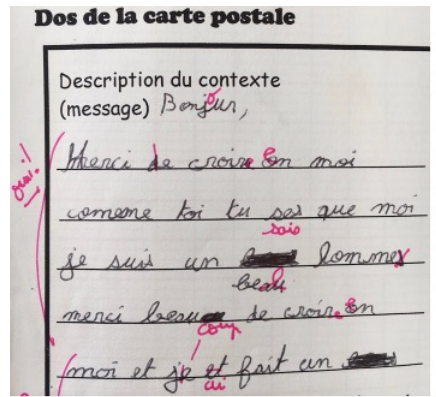 Dos de la carte postale
Description du contexte
(message) Bonjur,
o
oui!
Merci de croire en moi
comeme toi tu ses que moi
sais
je suis un lommes
beau
merci beau de croire en
coup
moi et je et fait un
ai